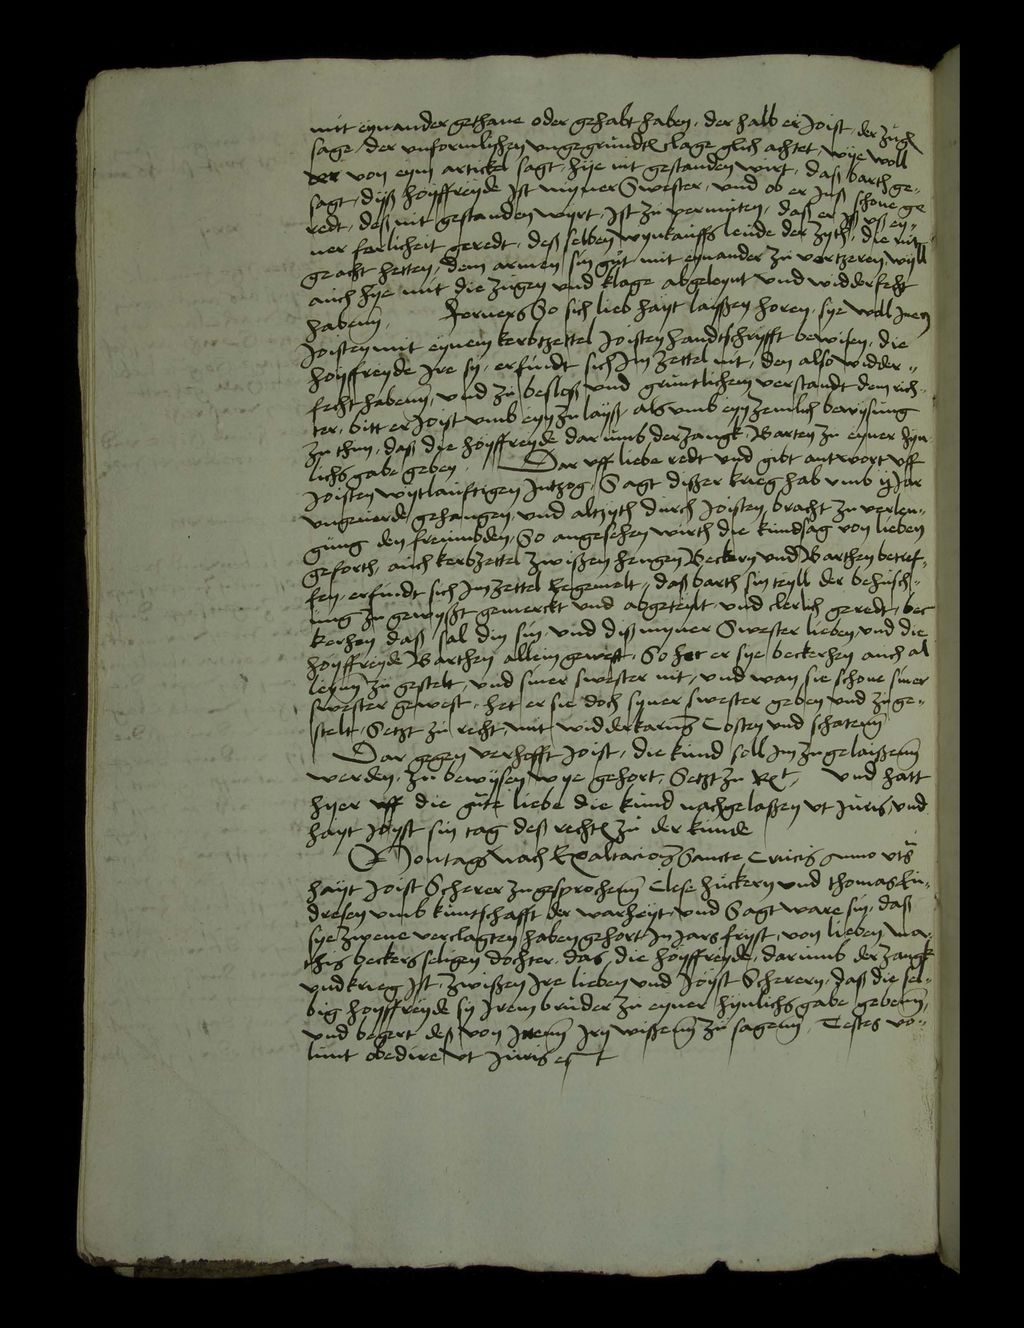 mit eynander gethane oder gehabt haben, der halb er Joist, der zugk
sage, der unformlichen ungegrundten clage glich achtet, wye woll
von eym artickel sagt, hye nit gestanden wirt, daß barth ge-
sagt, dyß hoyffreyde Ist myner Swester, und ob er Juß schone ge
redt, deß nit gestanden wyrt, Ist zu vermuten, daß er Jß uß ey-
ner ferlicheit geredt, deß selben wynkauffs leude der zyth, die nit
geacht hetten, dem armen sin gut mit eynander zu vertzeren wyll
auch hye mit die zugen und klage abgeleynt und widderfecht
habenn, Ferners So sich lieb hayt laißen horen, sye wal Jnen
Joisten mit eynem kerbtzettel Joisten handtschryfft bewisen, die
hoyffreyde Jre sy, erfindt sich Jm zettel nit, den also widder-
fecht habenn, und zu besloß und gruntlichem verstandt dem rich-
ter, bitt er Joist umb eyn zulayß, als umb eyn zemlich bewysung
zu thun, daß die hoyffreyde dar umb der zangk, Barten zu eyner hyn-
lichs gabe geben, Dar uff liebe redt und gibt antwort uff
Joisten wytlauftigen Intzog, Sagt dißer krieg hab umb ij Jar
ungeuerde gehangen, und altzyth durch Joisten bracht zu verlen-
gung den freumbden, So angesehen wirth die kundsag von lieben
geforth, auch kerbzettel zwißen hengen Beckern und Barthen betref-
fen, erfindt sich Jm zettel, daß barth sin teyll der behusch-
ung zu gewyßt gemerckt und abgeteylt und clerlich geredt, bec
kerhen daß sal din sin, und diß myner Swester lieben, und die
hoyffreyde Barthen allein gewest, So het er sye beckerhen auch al
leynn zu gestelt, und siner swester nit, und wan sie schone siner
swester gewest, het er sie doch syner swester geben und zu ge-
stelt, Setzt zu recht, mit widderkarung Costen und schatenn
Dar gegen verhofft Joist, die kund soll Jm zugelaißenn
werden, zu bewysen wye gehort, Setzt zu Rect, und hatt
hyer uff die gute liebe die kund nachgelaßen ut Juris, und
hayt Joyst sin tag deß rechten zu der kunde
Montags nach Exaltacionis Sancte Crucis Anno uts
hayt Joist Scherer zugesprochenn Clese huckern und thomas En-
dresen umb kuntschafft der warheyt, und Sagt ware sin, daß
sye zwene verclagten haben gehort In Jars fryst, von lieben Ma-
this beckers seligen dochter, das, die hoyffreyde, dar umb der zangk
und krieg Ist, zwißen Jre lieben und Joyst Scherern, daß die sel-
big hoyffreyde sy Jrem bruder zu eyner hynlichs gabe gebenn,
und begert deß von Jnenn Jrn wissenn zu sagenn, Testes vo-
lunt obedire ut Juris est